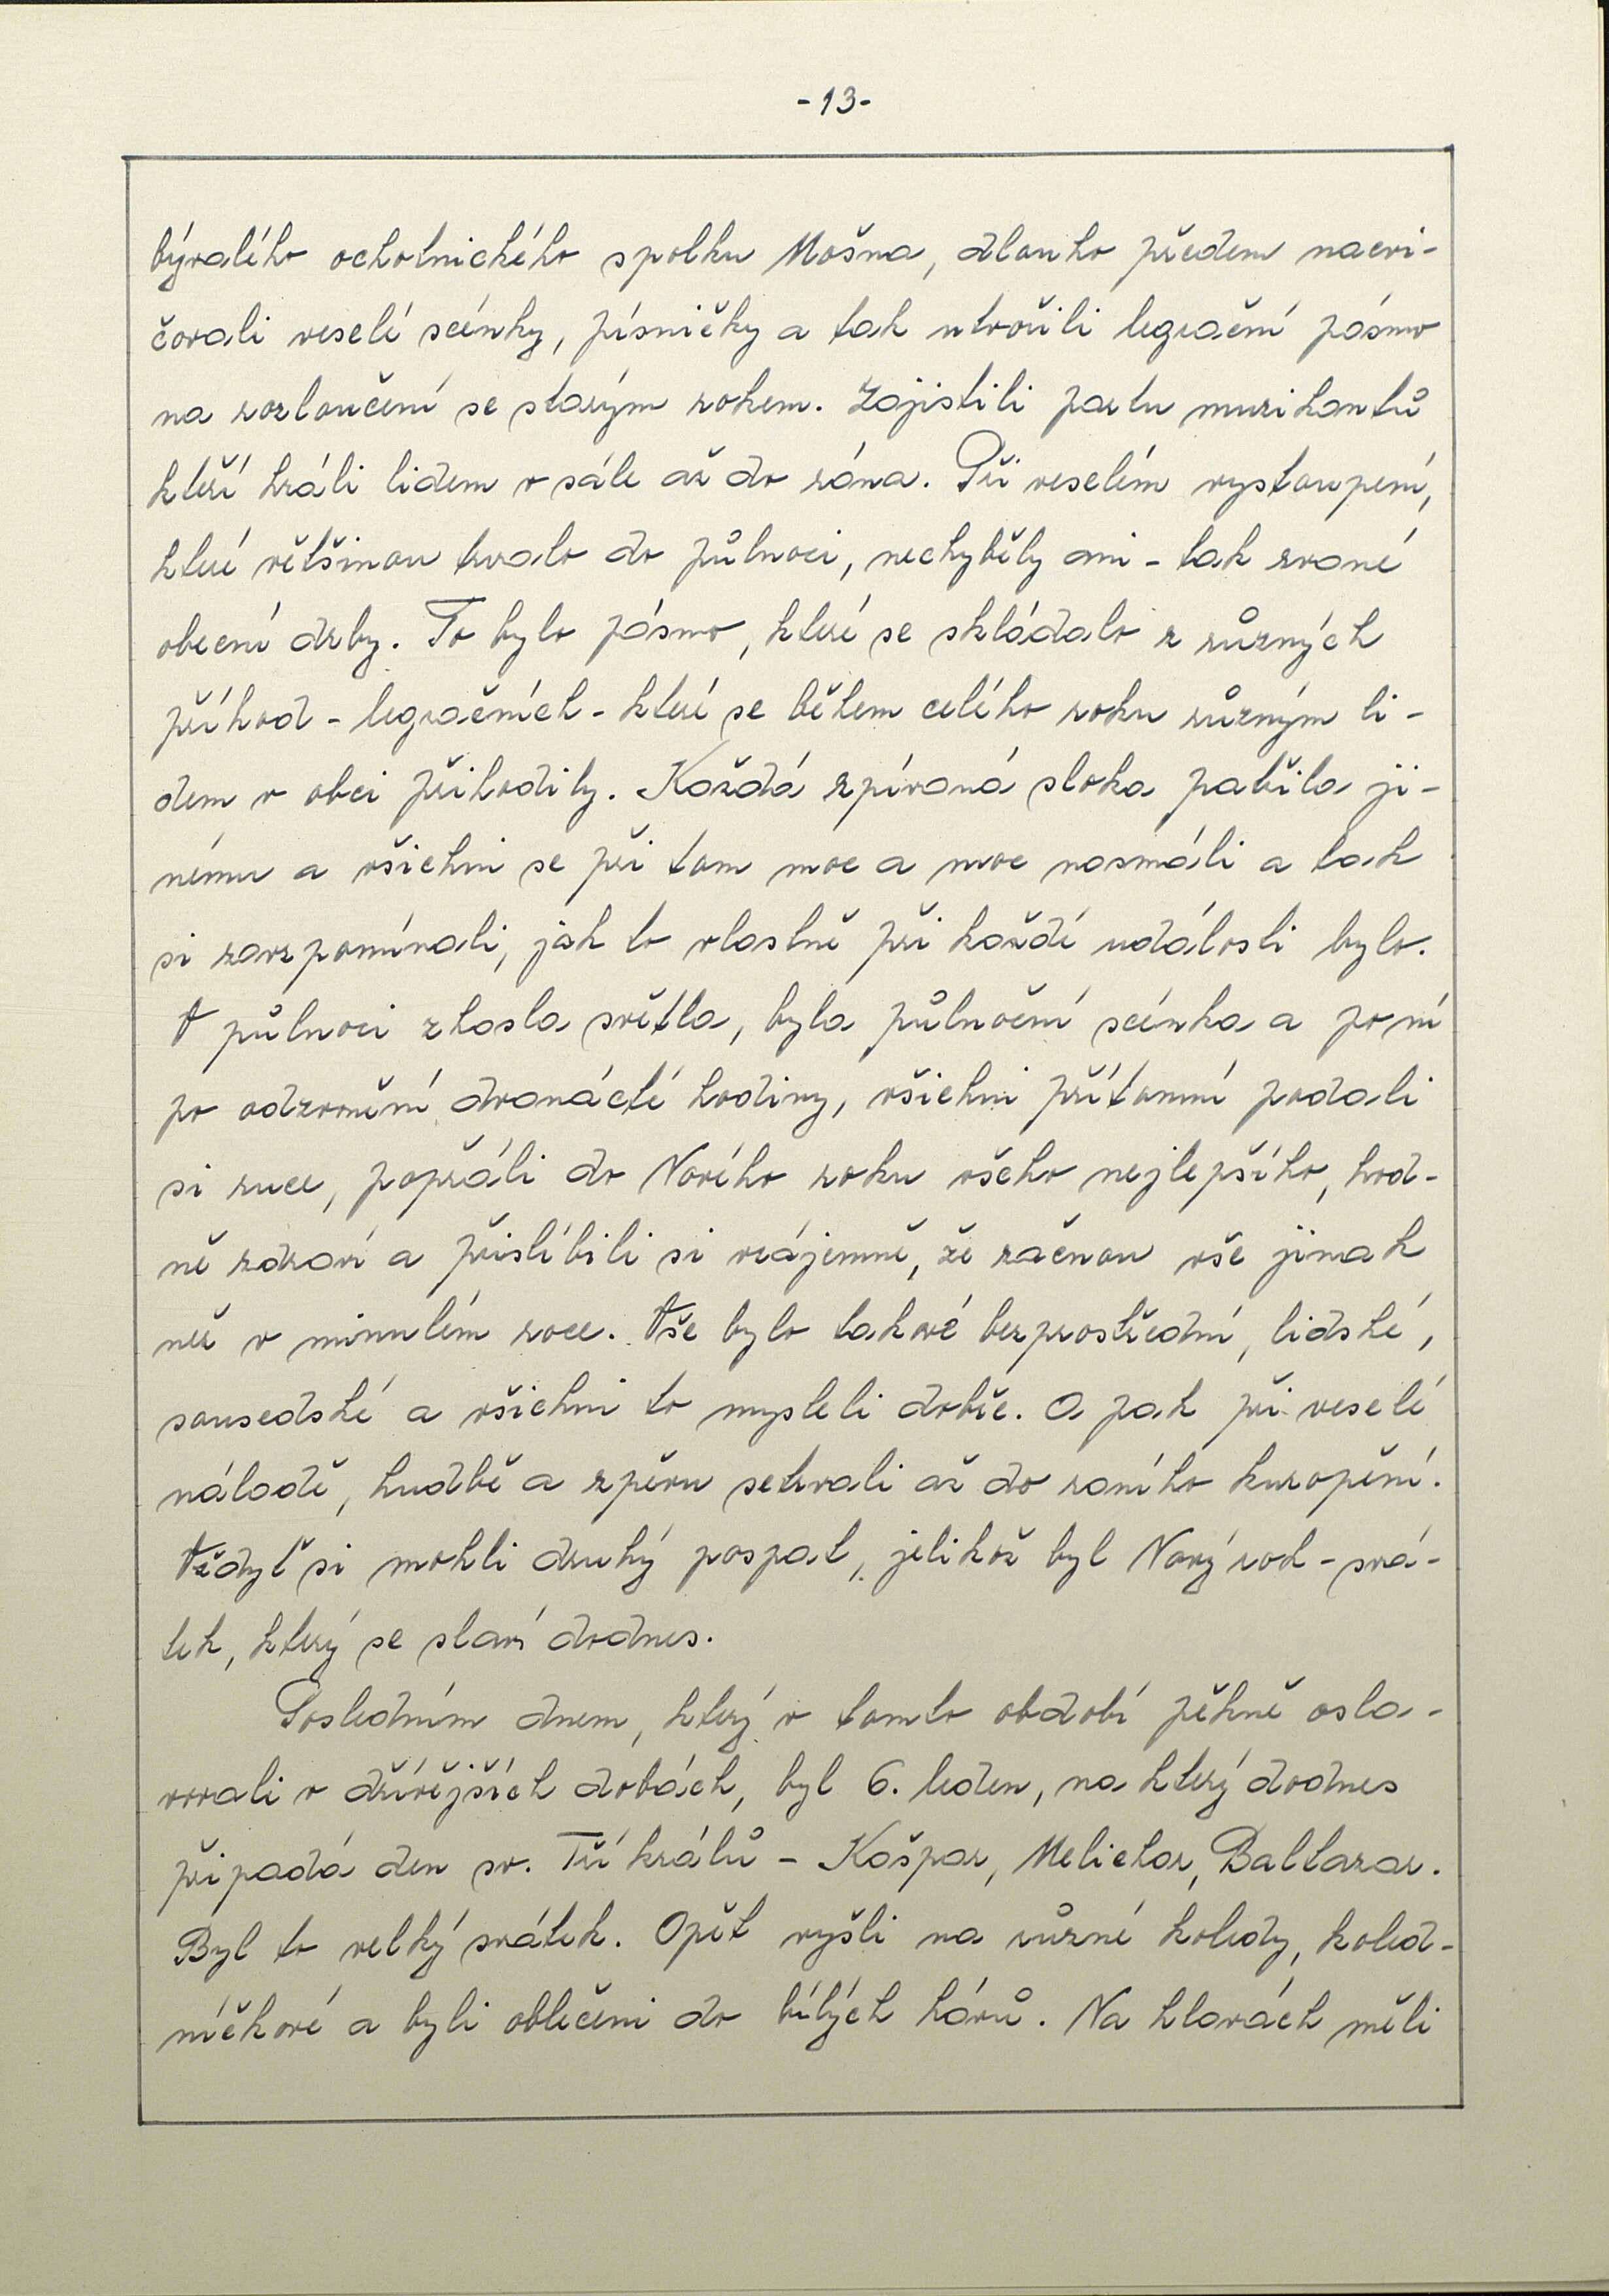 -13-
bývalého ochotnického spolku Mošna, dlouho předem nacvi-
čovali veselé scénky, písničky a tak utvořili legrační pásmo
na rozloučení se starým rokem. Zajistili partu muzikantů
kteří hráli lidem v sále až do rána. Při veselém vystoupení,
které většinou trvalo do půlnoci, nechyběly ani - tak zvané
obecní drby. To bylo pásmo, které se skládalo z různých
příhod - legračních - které se během celého roku různým li-
dem v obci přihodily. Každá zpívaná sloka patřila ji-
nému a všichni se při tom moc a moc nasmáli a tak
si zavzpomínali, jak to vlastně při každé události bylo.
V půlnoci zhasla světla, byla půlnoční scénka a po ní
po odzvonění dvanácté hodiny, všichni přítomní podali
si ruce, popřáli do Nového roku všeho nejlepšího, hod-
ně zdraví a přislíbili si vzájemně, že začnou vše jinak
než v minulém roce. Vše bylo takové bezprostřední, lidské,
sousedské a všichni to mysleli dobře. A pak při veselé
náladě, hudbě a zpěvu setrvali až do raního kuropění.
Vždyť si mohli druhý pospat, jelikož byl Nový rok - svá-
tek, který se slaví dodnes.
Posledním dnem, který v tomto období pěkně osla-
vovali v dřívějších dobách, byl 6. leden, na který dodnes
připadá den sv. Tří králů - Kašpar, Melichar, Baltazar.
Byl to velký svátek. Opět vyšli na různé koledy, koled-
níčkové a byli oblečeni do bílých hávů. Na hlavách měli